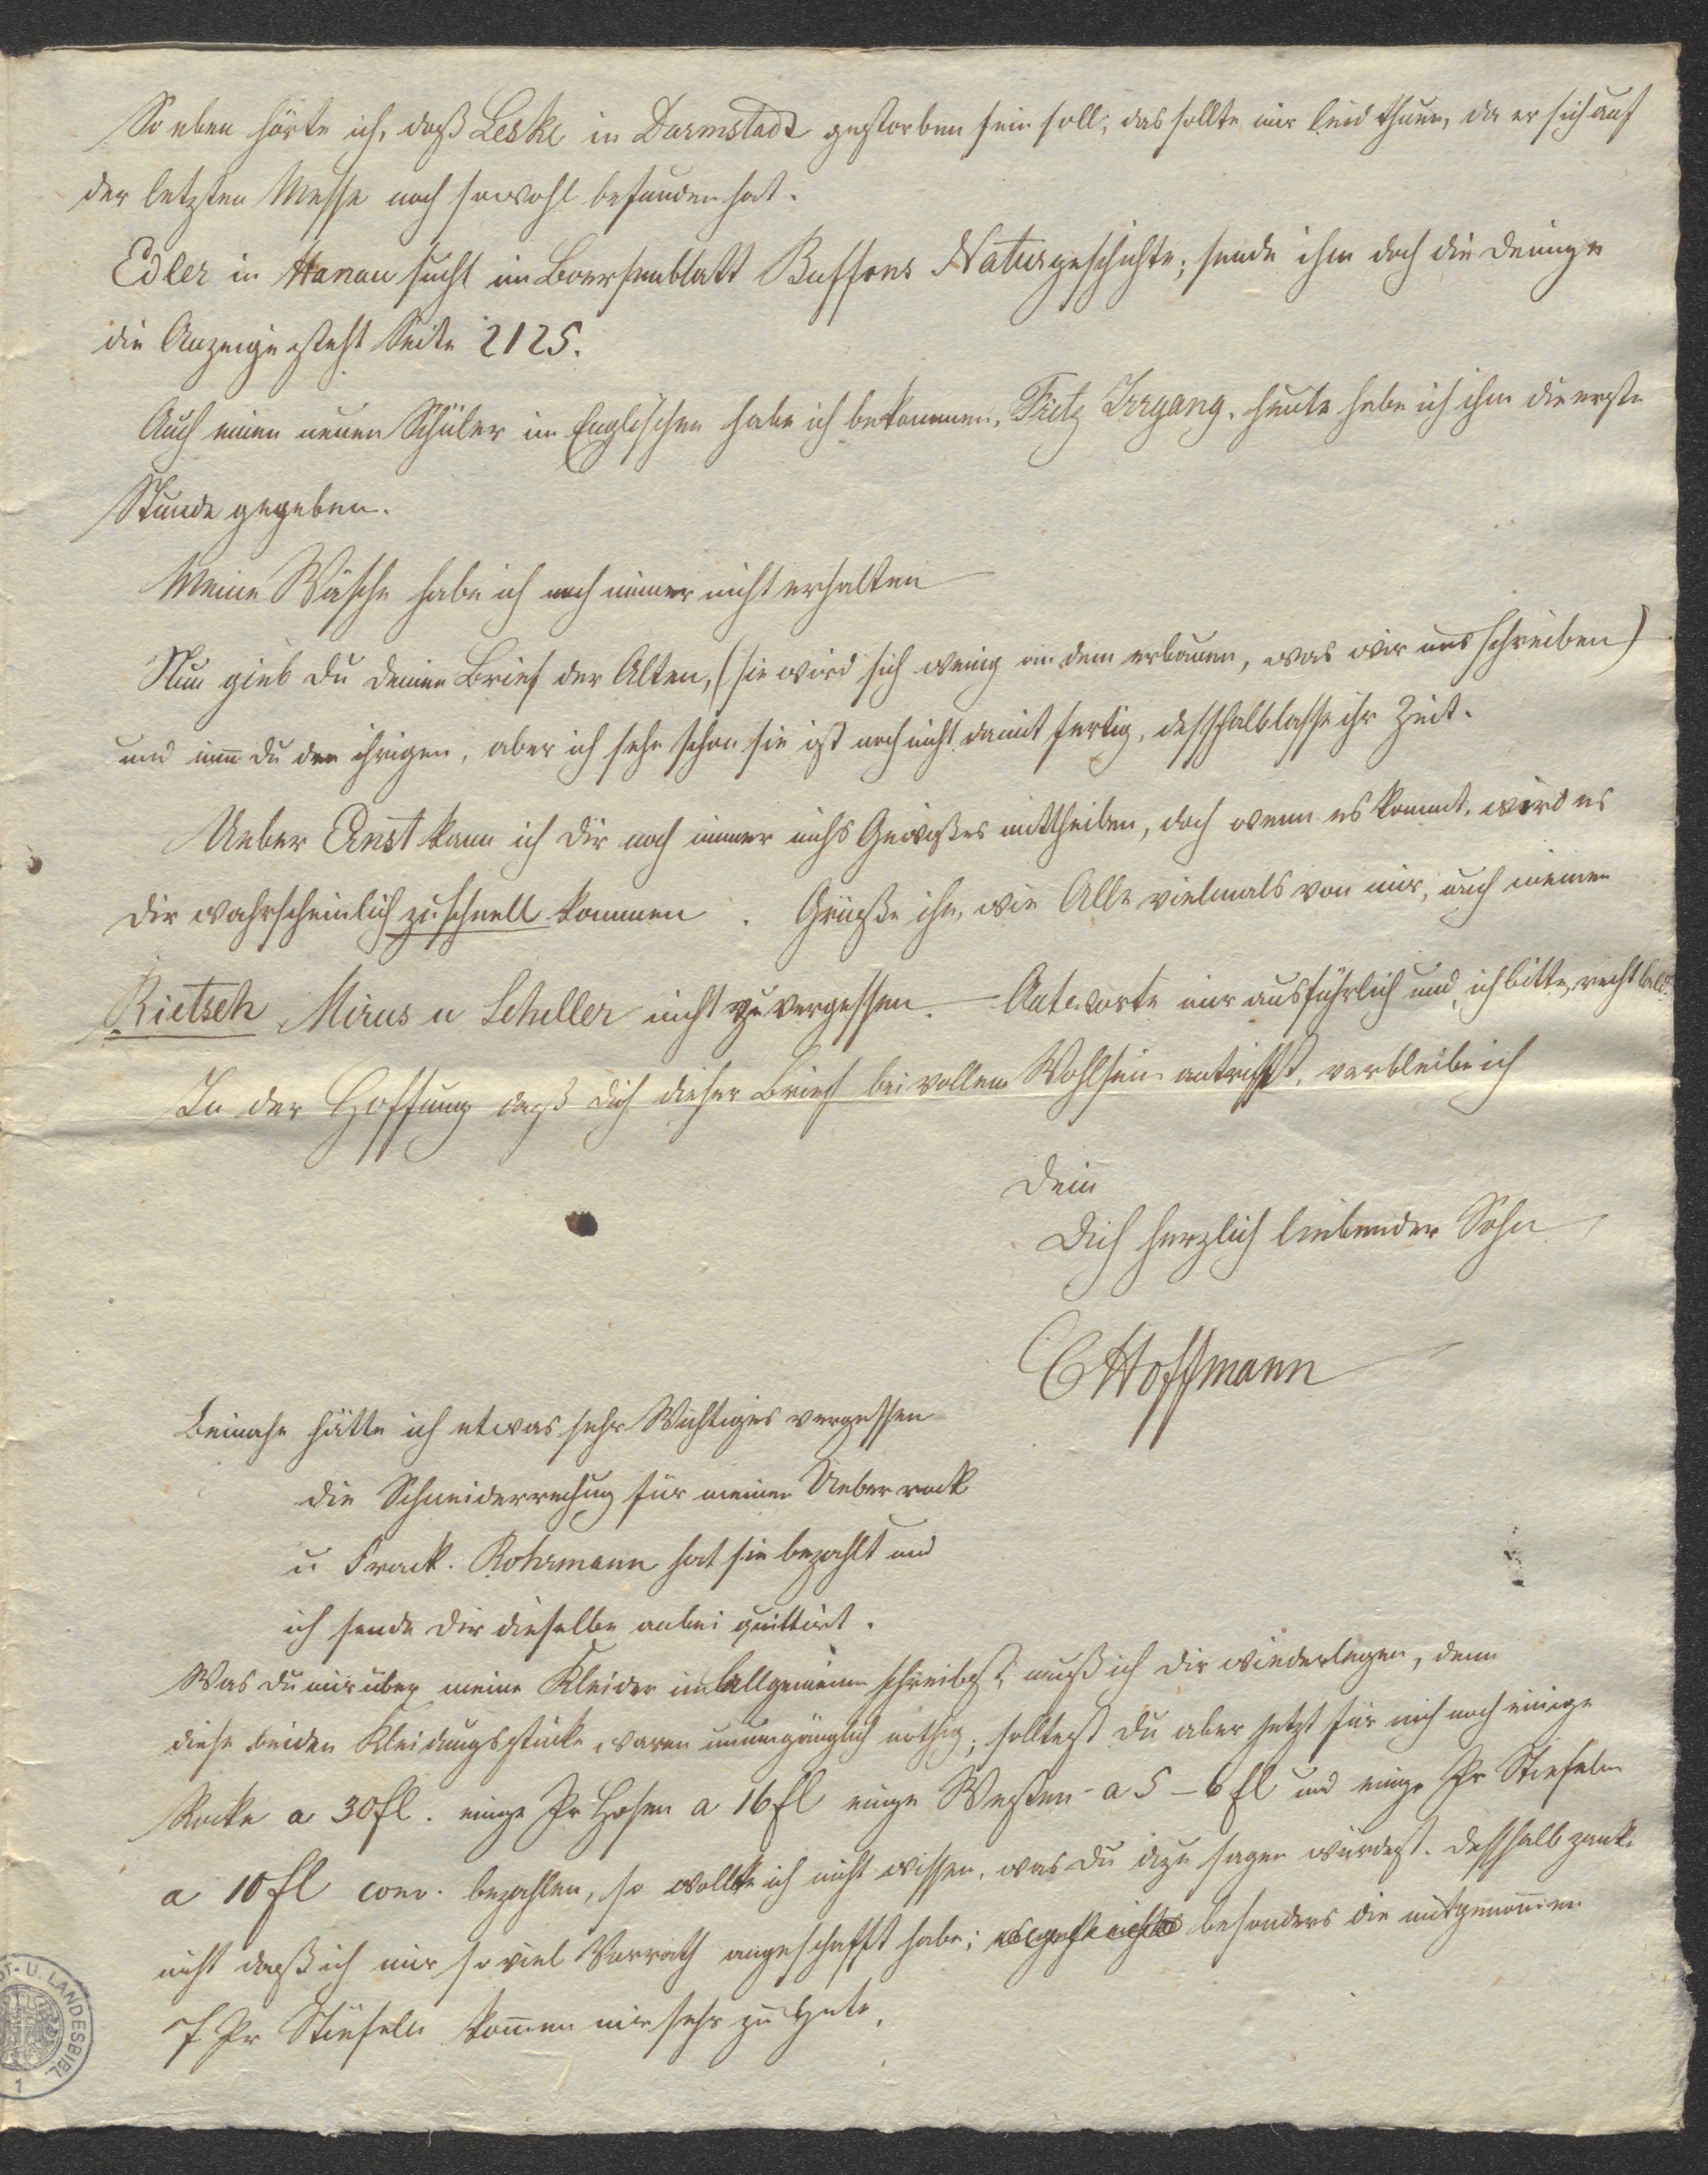 So eben hörte ich, daß Leske in Darmstadt gestorben sein soll; das sollte mir leid thuen, da er sich auf
der letzten Messe noch so wohl befunden hat.
Edler in Hanau sucht im Boersenblatt Buffons Naturgeschichte; sende ihm doch die Deinige
die Anzeige steht Seite 2125.
Auch einen neuen Schüler im Englischen habe ich bekommen, Fritz Irrgang, heute habe ich ihm die erste
Stunde gegeben.
Meine Wäsche habe ich noch immer nicht erhalten
Nun gieb Du Deinen Brief der Alten, (sie wird sich wenig an dem erbauen, was wir uns schreiben)
und nim̅ Du den ihrigen, aber ich sehe schon sie ist noch nicht damit fertig, desshalb lasse ihr Zeit.
Ueber Ernst kann ich Dir noch immer nichs Gewißes mittheilen, doch wenn es kommt, wird es
Dir wahrscheinlich zu schnell kommen. Grüße ihn, wie Alle vielmals von mir, auch meinen
Rietsch Mirus u Scheller nicht zu vergessen. – Antworte mir ausführlich und, ich bitte, recht bald.
In der Hoffnung daß Dich dieser Brief bei vollem Wohlsein antrifft, verbleibe ich
Dein
Dich herzlich liebender Sohn
CHoffmann
Beinahe hätte ich etwas sehr Wichtiges vergessen
die Schneiderrechnung für meinen Ueberrock
u Frack. Rohrmann hat sie bezahlt und
ich sende Dir dieselbe anbei quittirt.
Was Du mir über meine Kleider im Allgemeinen schreibst, muß ich Dir wiederlegen, denn
diese beiden Kleidungsstücke waren unumgänglich nöthig; solltest Du aber jetzt für mich noch einige
Röcke a 30 fl. einige Pr Hosen a 16 fl einige Westen a 5–6 fl und einige Pr Stiefeln
a 10 fl conv. bezahlen, so wollte ich nicht wissen, was Du dazu sagen würdest. Desshalb zanke
nicht daß ich mir so viel Vorrath angeschafft habe; besonders die mitgenom̅enen
7 Pr Stiefeln kom̅en mir sehr zu Gute.
U. LANDESBIBL.
1